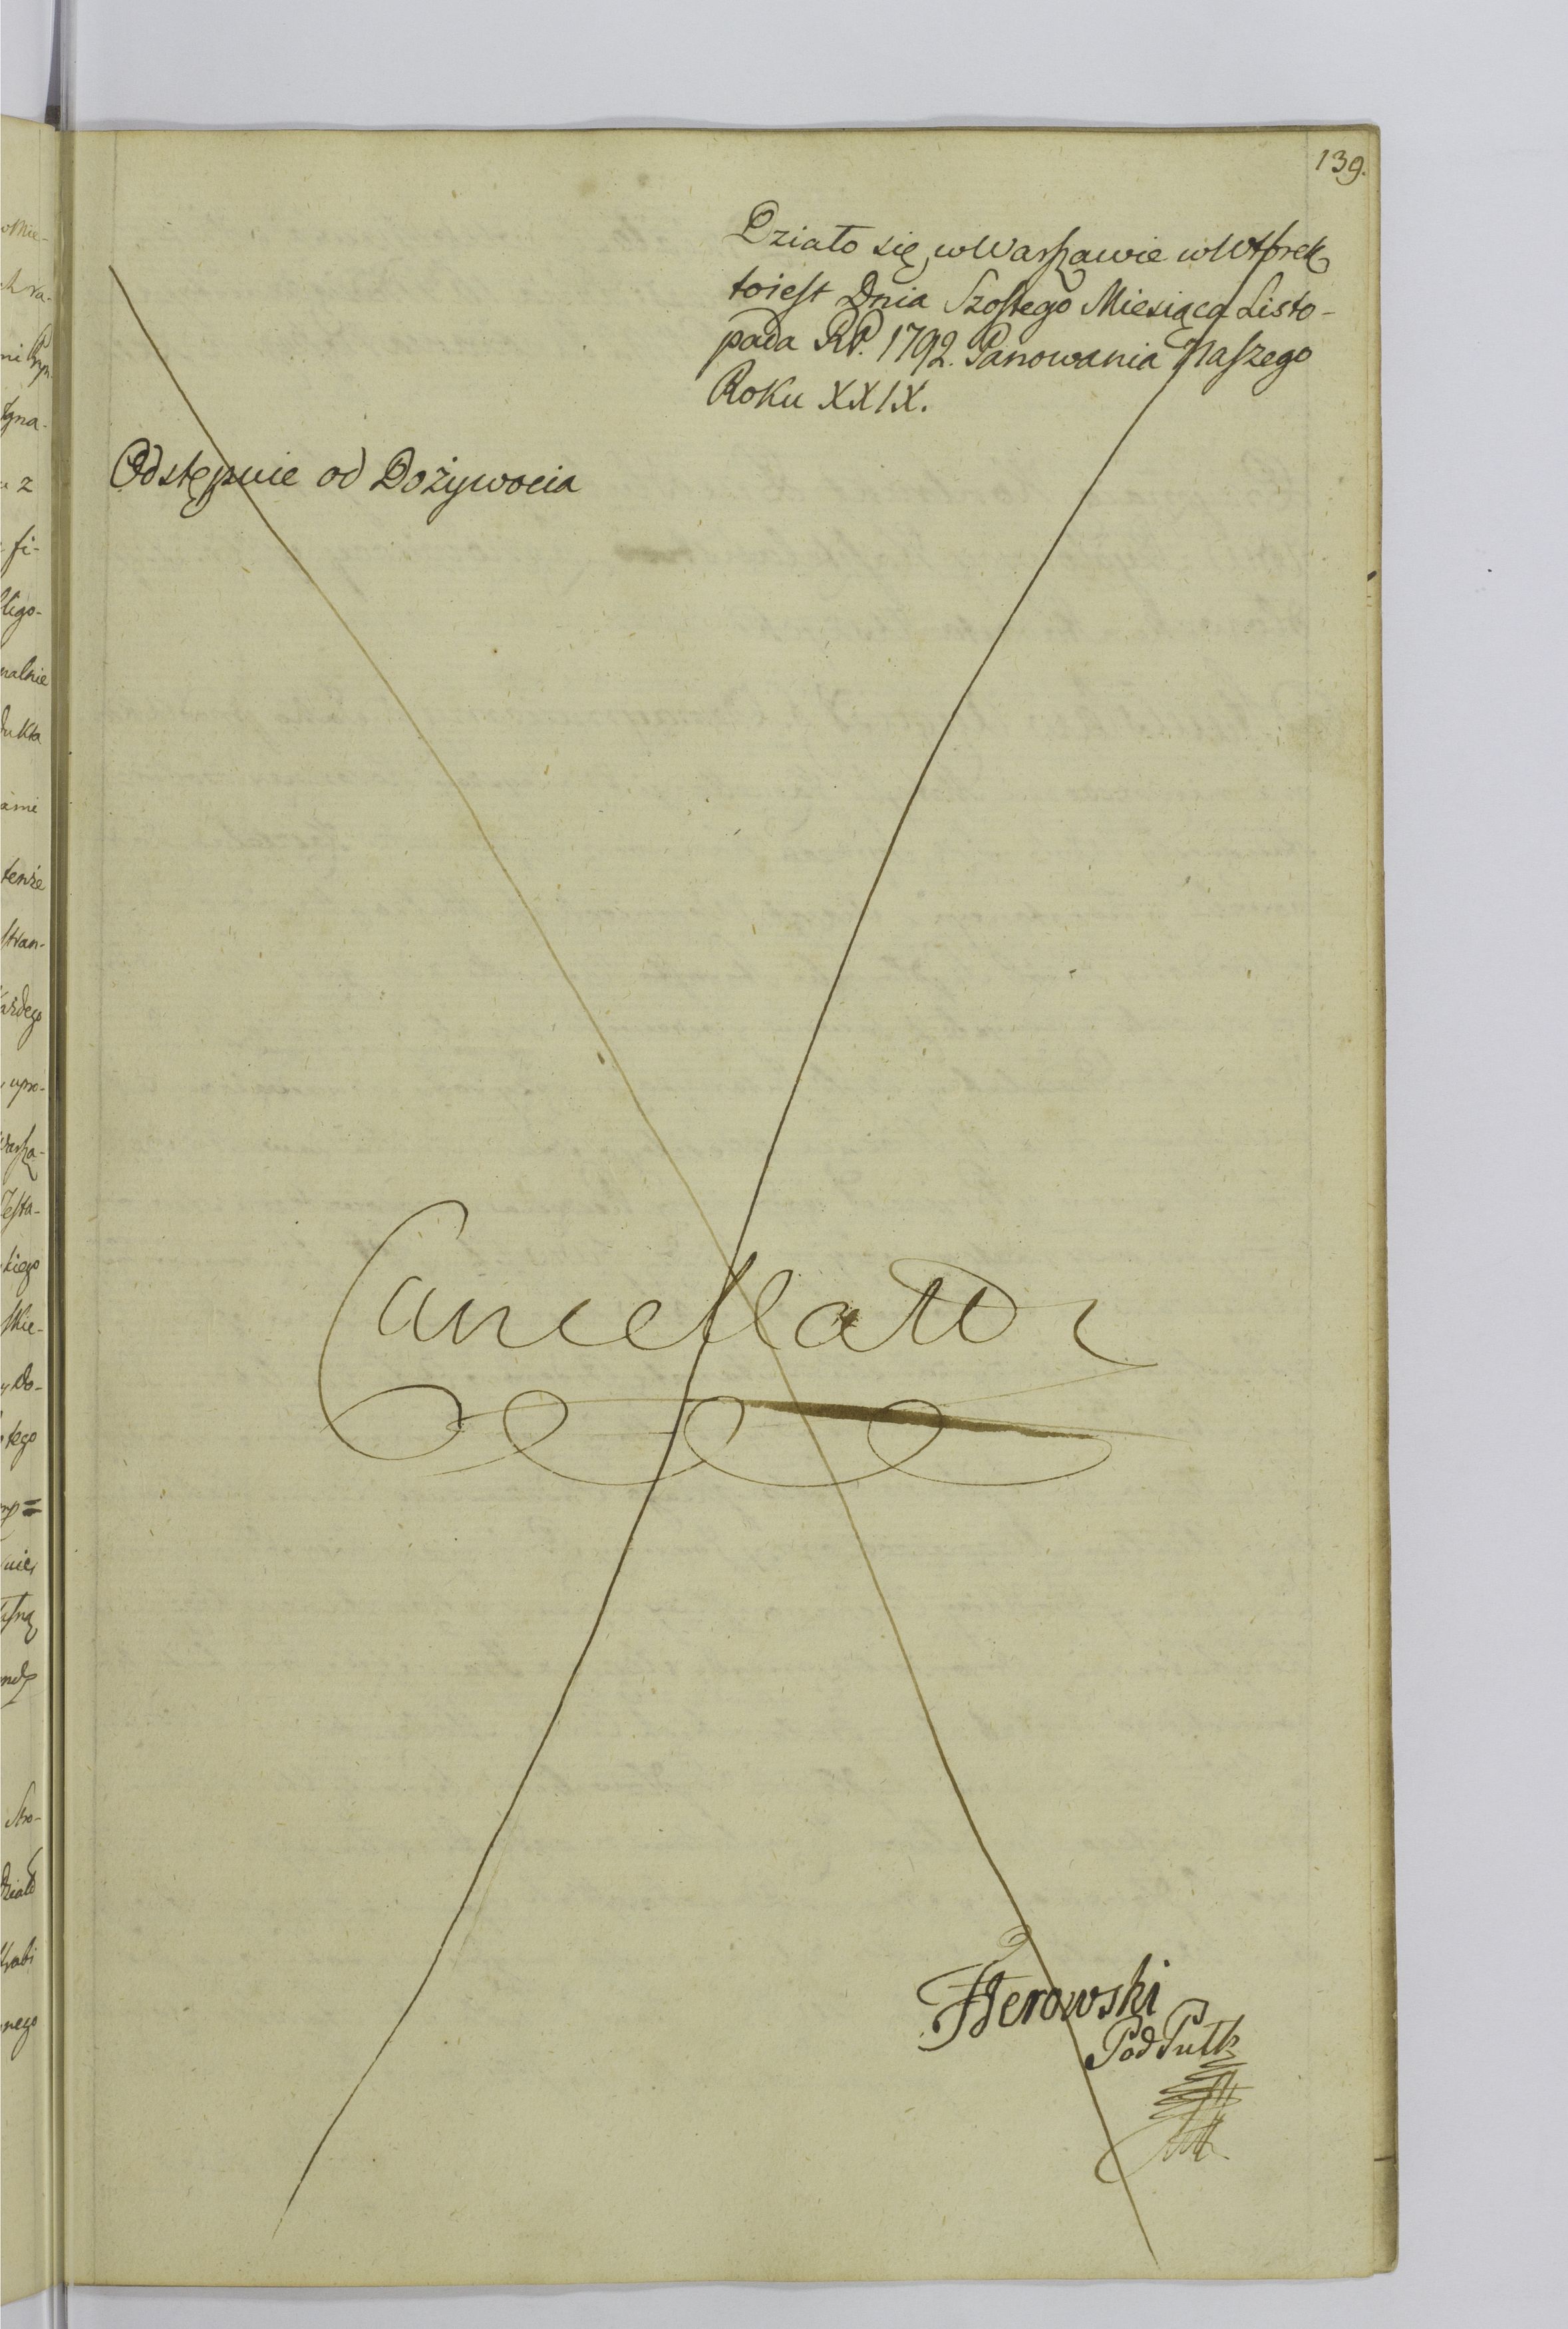 139.
Działo się, w Warszawie w Wtorek
toiest Dnia Szostego Miesiąca Listo-
pada RP. 1792. Panowania Naszego
Roku XXIX.
Odstępnie od Dożywocia
Cancellatur
Pod Pułk